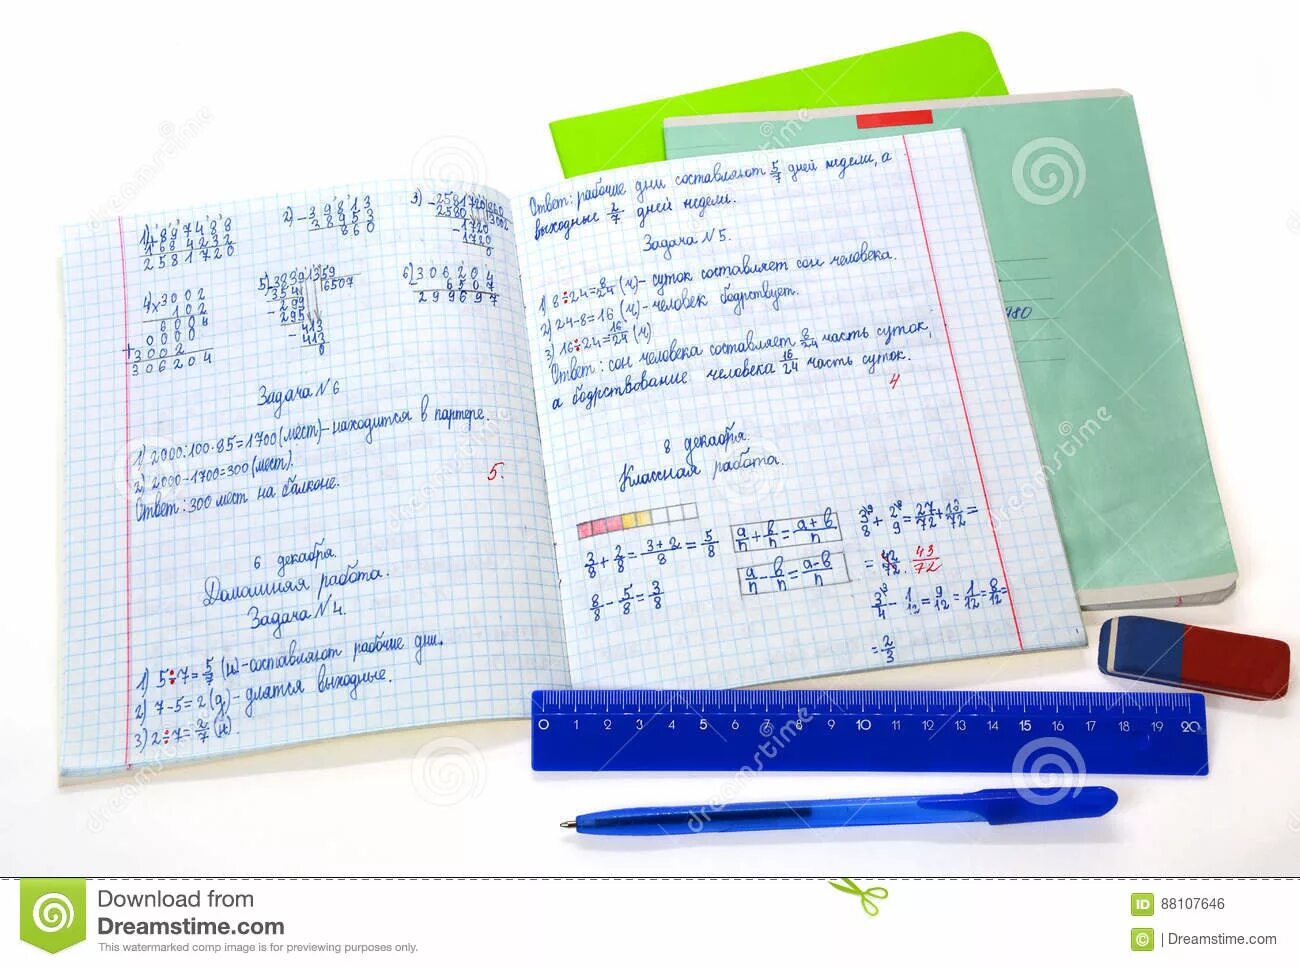 1) 897488
+ 1684232
2581720
2) - 39813
38953
860
3) - 2581720 860
2580 3002
- 1720
- 1720
0
4) x 3002
102
6004
+ 0000
3002
306204
5) 3839 1359
354 6507
- 299
295
- 413
413
0
6) 306204
6507
299697
Задача N 6
1) 2000:100·85=1700 (мест) - находится в партере.
2) 2000-1700=300 (мест).
Ответ: 300 мест на балконе.
5.
6 декабря.
Домашняя работа.
Задача N 4.
1) 5:7=5/7 (н) - составляют рабочие дни.
2) 7-5=2 (д) - длятся выходные.
3) 2:7=2/7 (н).
Ответ: рабочие дни составляют 5/7 дней недели, а
выходные 2/7 дней недели.
Задача N 5.
1) 8:24=8/24 (ч) - суток составляет сон человека.
2) 24-8=16 (ч) - человек бодрствует.
3) 16:24=16/24 (ч)
Ответ: сон человека составляет 8/24 часть суток,
а бодрствование человека 16/24 часть суток.
4
8 декабря.
Классная работа.
3/8 + 2/8 = 3+2/8 = 5/8
8/8 - 5/8 = 3/8
a/n + b/n = a+b/n
a/n - b/n = a-b/n
3/8 + 2/9 = 27/72 + /72 =
= 42/72. 43/72
3/4 - 1/12 = 9/12 - 1/12 = 8/12 =
= 2/3
0 1 2 3 4 5 6 7 8 9 10 11 12 13 14 15 16 17 18 19 20
Download from
Dreamstime.com
This watermarked comp image is for previewing purposes only.
ID 88107646
© | Dreamstime.com